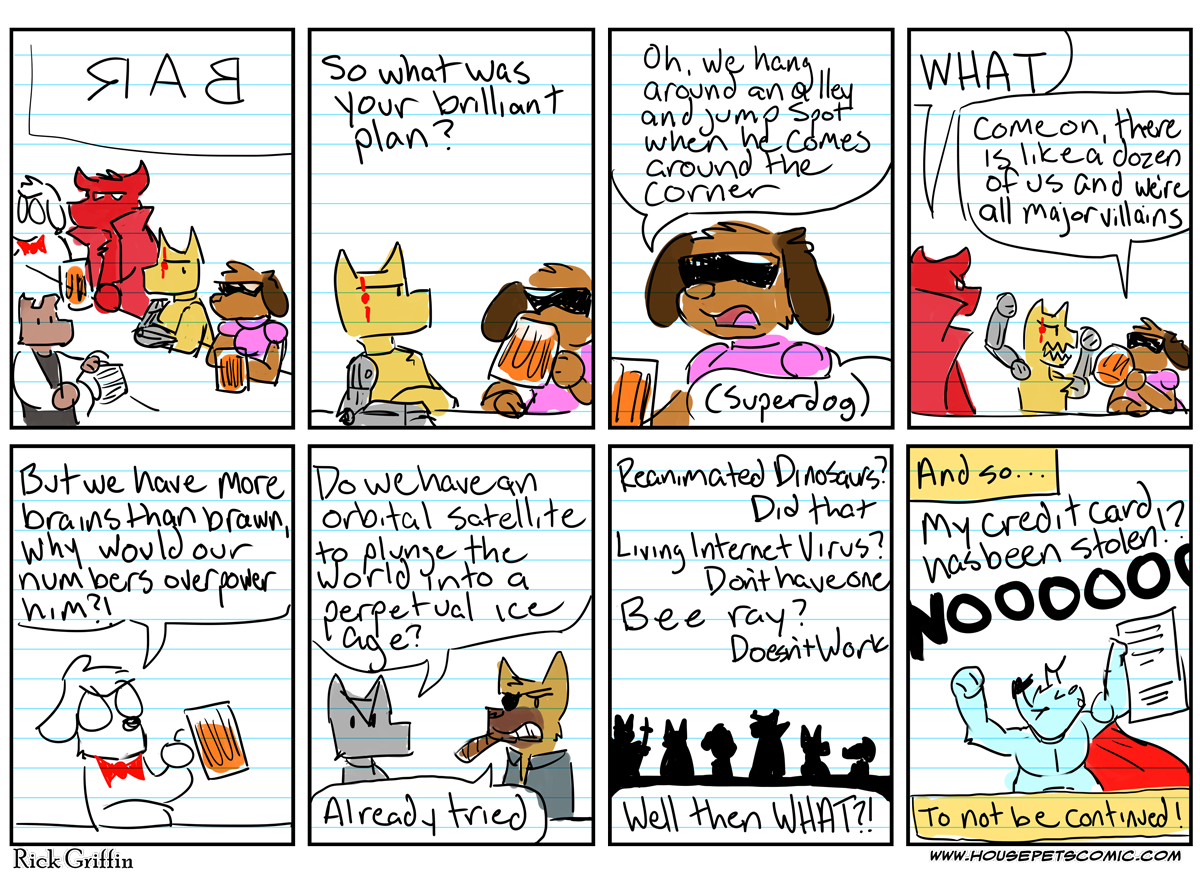 BAR
So what was
your brilliant
plan?
Oh, we hang
around an alley
and jump Spot
when he comes
around the
corner
(Superdog)
WHAT
Come on, there
is like a dozen
of us and we're
all major villains
But we have more
brains than brawn,
why would our
numbers overpower
him?!
Do we have an
orbital satellite
to plunge the
world into a
perpetual ice
age?
Already tried
Reanimated Dinosaurs?
Did that
Living Internet Virus?
Don't have one
Bee ray?
Doesn't Work
Well then WHAT?!
And so...
My credit card
has been stolen..!?
NOOOOO
To not be continued!
Rick Griffin
WWW.HOUSEPETSCOMIC.COM